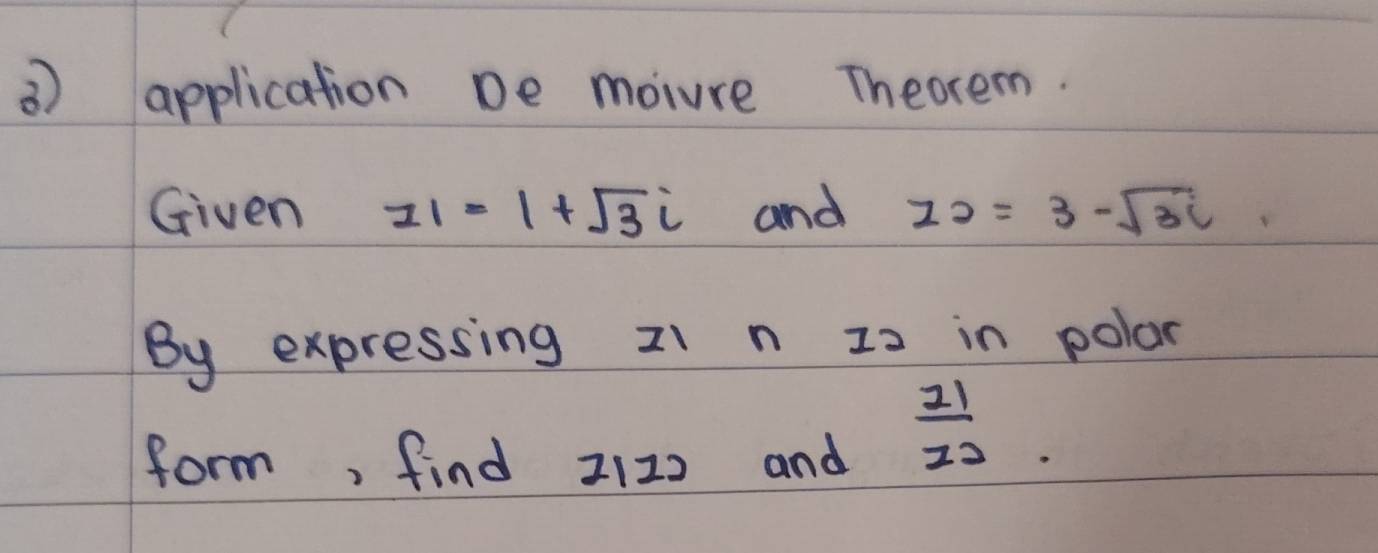 2) application De moivre Theorem.
Given z1 = 1 + √3i and z2 = 3 - √3i.
By expressing z1 n z2 in polar
form, find z1z2 and z1/z2.